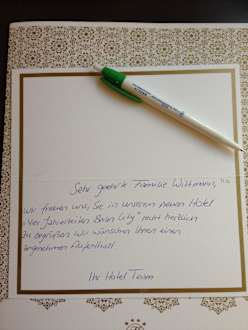 Sehr geehrte Familie Wittmann,
wir freuen uns, Sie in unserem neuen Hotel
"Vier Jahreszeiten Berlin City" recht herzlich
zu begrüßen. Wir wünschen Ihnen einen
angenehmen Aufenthalt.
Ihr Hotel Team